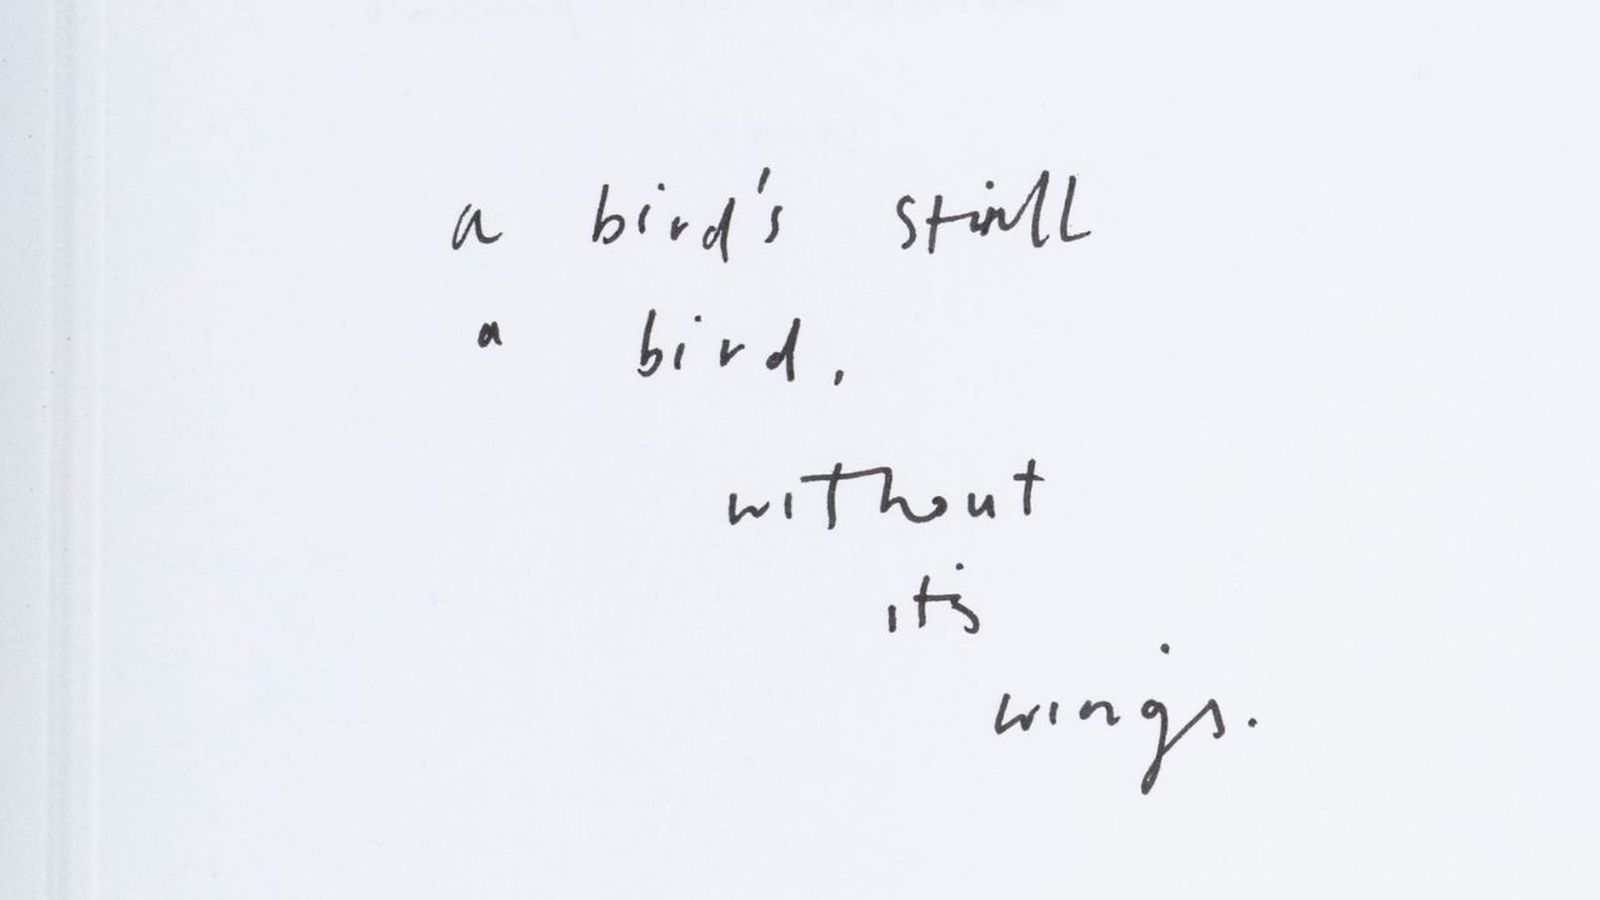 a bird's still
a bird,
without
its
wings.